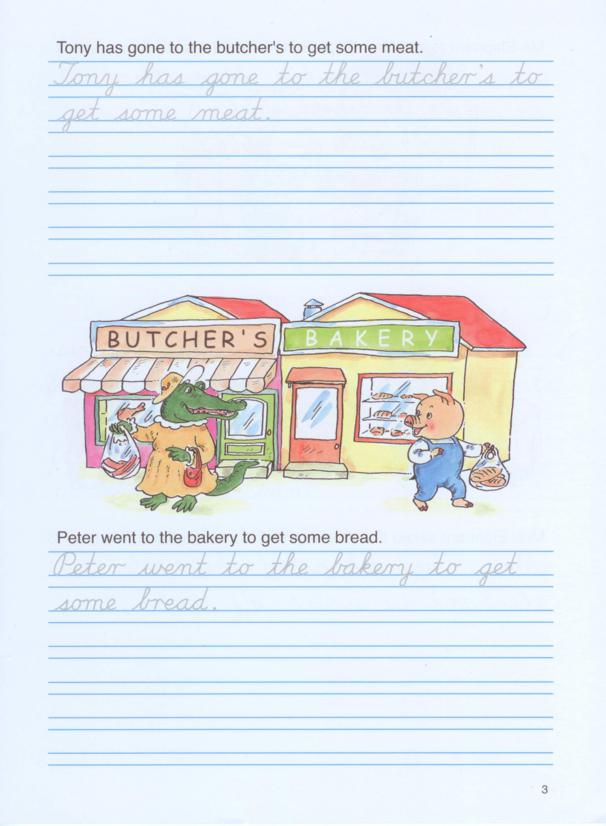 Tony has gone to the butcher's to get some meat.
Tony has gone to the butcher's to
get some meat.
BUTCHER'S BAKERY
Peter went to the bakery to get some bread.
Peter went to the bakery to get
some bread.
3